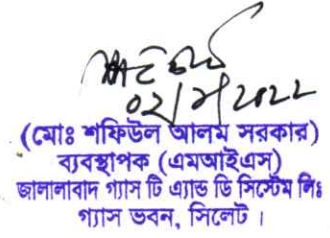 (মোঃ শফিউল আলম সরকার)
ব্যবস্থাপক (এমআইএস)
জালালাবাদ গ্যাস টি এ্যান্ড ডি সিস্টেম লিঃ
গ্যাস ভবন, সিলেট ।